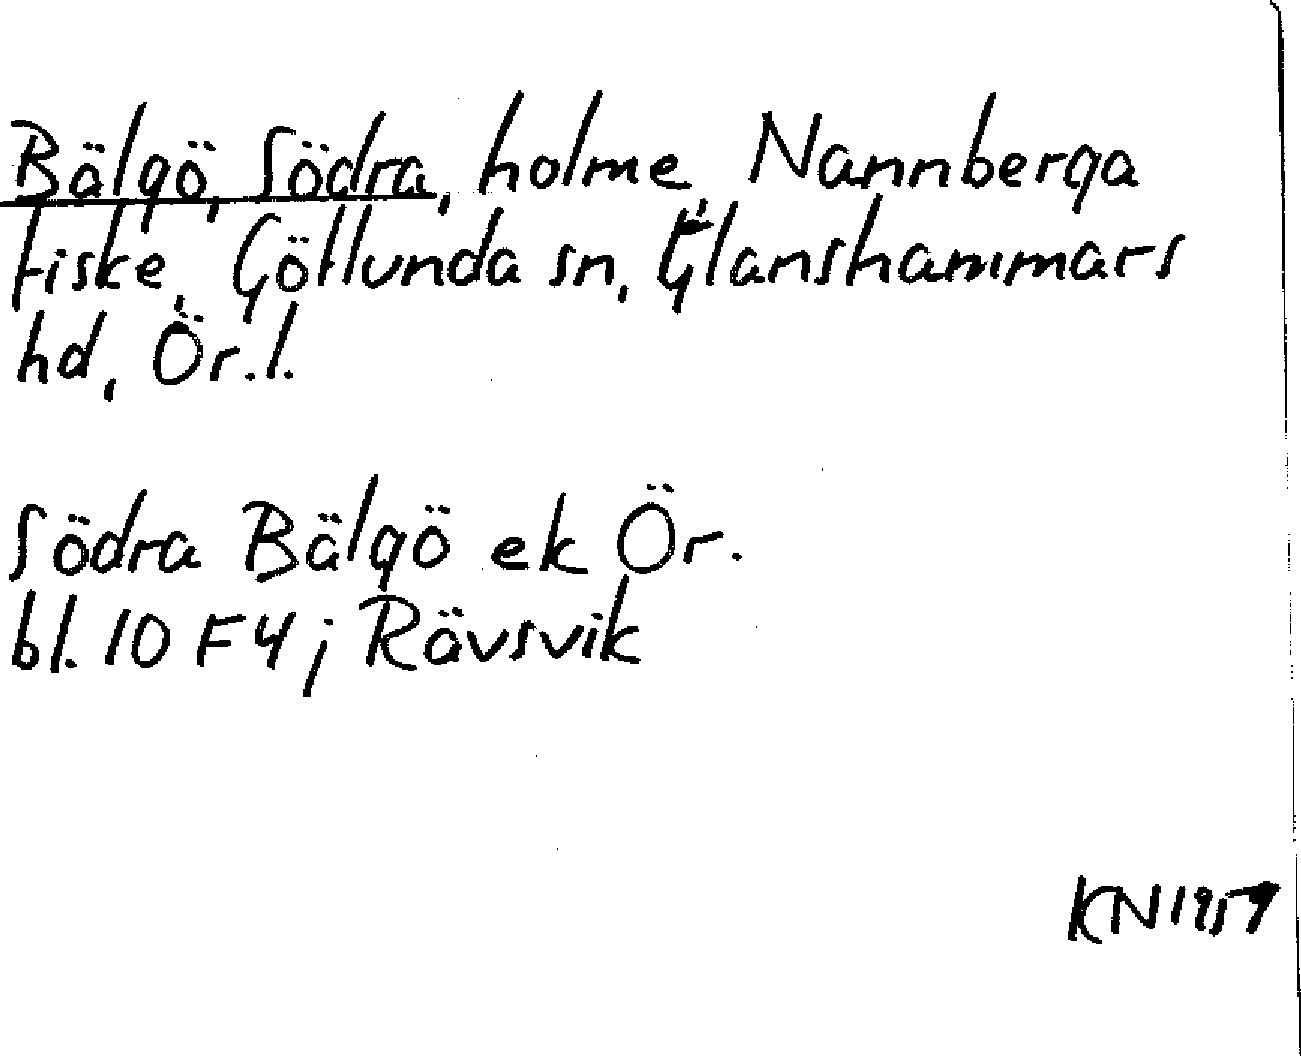 Bälgö, Södra, holme, Nannberga
fiske, Götlunda sn, Glanshammars
hd, Ör.l.
Södra Bälgö ek Ör.
bl. 10 F4; Rävsvik
KN 1957